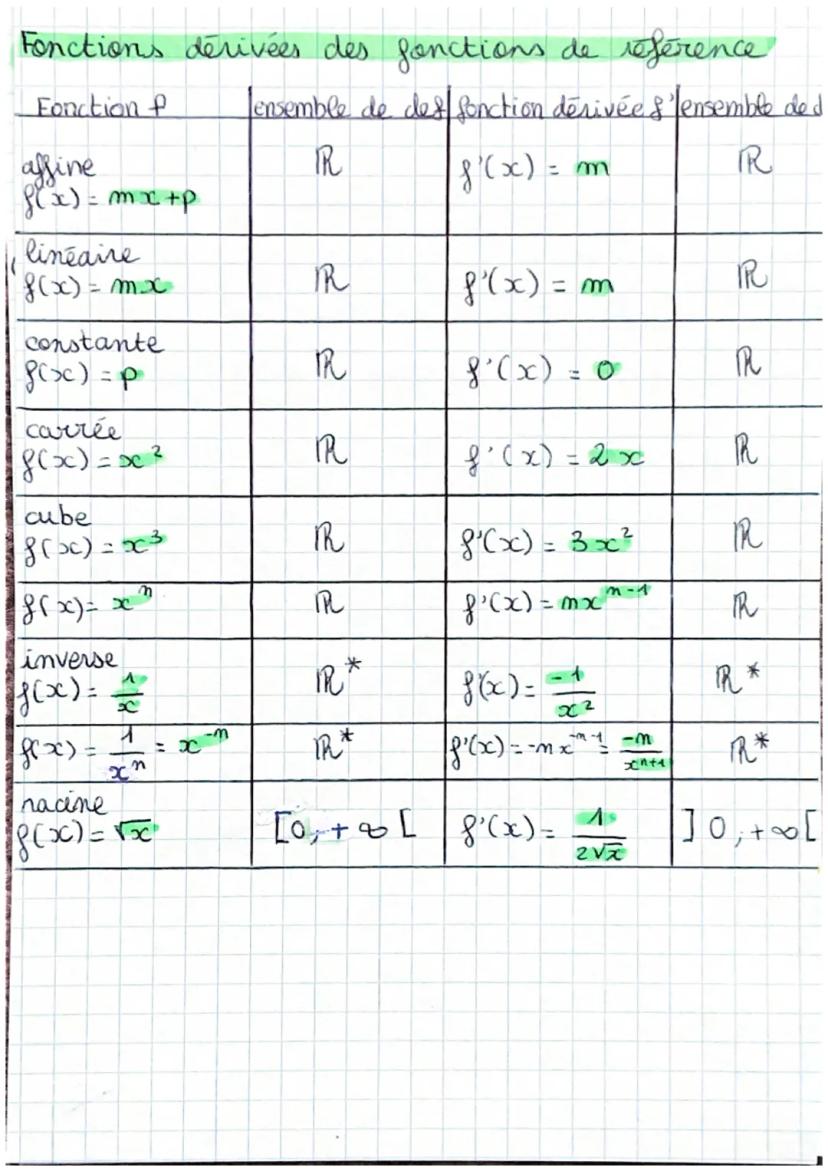 Fonctions dérivées des fonctions de référence
Fonction f ensemble de def fonction dérivée f' ensemble de d
affine
f(x) = mx+p ℝ f'(x) = m ℝ
linéaire
f(x) = mx ℝ f'(x) = m ℝ
constante
f(x) = p ℝ f'(x) = 0 ℝ
carrée
f(x) = x² ℝ f'(x) = 2x ℝ
cube
f(x) = x³ ℝ f'(x) = 3x² ℝ
f(x) = xⁿ ℝ f'(x) = nxⁿ⁻¹ ℝ
inverse
f(x) = 1/x ℝ* f'(x) = -1/x² ℝ*
f(x) = 1/xⁿ = x⁻ⁿ ℝ* f'(x) = -nx⁻ⁿ⁻¹ = -n/xⁿ⁺¹ ℝ*
racine
f(x) = √x [0,+∞[ f'(x) = 1/2√x ]0,+∞[